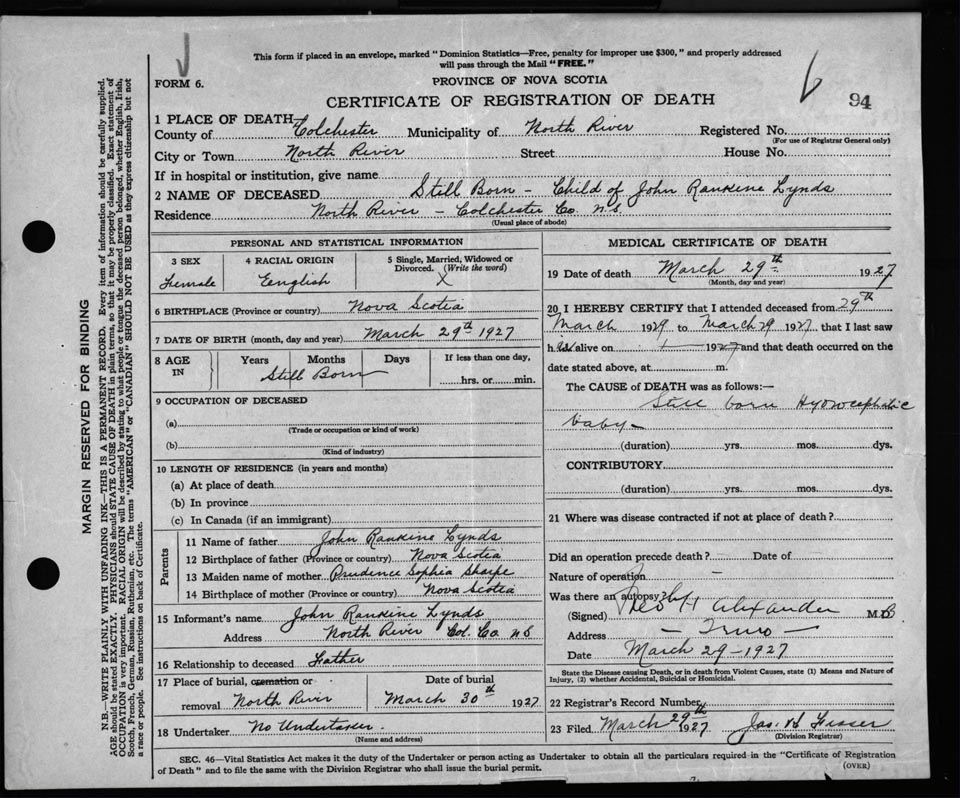 This form if placed in an envelope, marked "Dominion Statistics—Free, penalty for improper use $300," and properly addressed
will pass through the Mail "FREE."
FORM 6.
PROVINCE OF NOVA SCOTIA
94
CERTIFICATE OF REGISTRATION OF DEATH
1 PLACE OF DEATH
County of Colchester Municipality of North River Registered No.
(For use of Registrar General only)
City or Town North River Street House No.
If in hospital or institution, give name
2 NAME OF DECEASED Still Born - Child of John Rankine Lynds
Residence North River - Colchester Co. N.S.
(Usual place of abode)
PERSONAL AND STATISTICAL INFORMATION
3 SEX 4 RACIAL ORIGIN 5 Single, Married, Widowed or
Divorced. (Write the word)
Female Eenglish X
6 BIRTHPLACE (Province or country) Nova Scotia
7 DATE OF BIRTH (month, day and year) March 29th 1927
8 AGE IN Years Months Days If less than one day,
Still Born hrs. or min.
9 OCCUPATION OF DECEASED
(a)
(Trade or occupation or kind of work)
(b)
(Kind of industry)
10 LENGTH OF RESIDENCE (in years and months)
(a) At place of death
(b) In province
(c) In Canada (if an immigrant)
Parents
11 Name of father John Rankine Lynds
12 Birthplace of father (Province or country) Nova Scotia
13 Maiden name of mother Prudence Sophia Sharpe
14 Birthplace of mother (Province or country) Nova Scotia
15 Informant's name John Rankine Lynds
Address North River Col. Co. N S
16 Relationship to deceased Father
17 Place of burial, cremation or Date of burial
removal North River March 30th 1927
18 Undertaker No Undertaker.
(Name and address)
MEDICAL CERTIFICATE OF DEATH
19 Date of death March 29th 1927
(Month, day and year)
20 I HEREBY CERTIFY that I attended deceased from 29th
March 1929 to March 29 1927 that I last saw
h alive on 1927 and that death occurred on the
date stated above, at m.
The CAUSE of DEATH was as follows:—
Still born Hydrocephalic
baby -
(duration) yrs. mos. dys.
CONTRIBUTORY
(duration) yrs. mos. dys.
21 Where was disease contracted if not at place of death?
Did an operation precede death? Date of
Nature of operation
Was there an autopsy?
(Signed) H Alexander M.D.
Address - Truro -
Date March 29-1927
State the Disease causing Death, or in death from Violent Causes, state (1) Means and Nature of
Injury, (2) whether Accidental, Suicidal or Homicidal.
22 Registrar's Record Number
23 Filed March 29th 1927 Jas.
(Division Registrar)
SEC. 46—Vital Statistics Act makes it the duty of the Undertaker or person acting as Undertaker to obtain all the particulars required in the "Certificate of Registration
of Death" and to file the same with the Division Registrar who shall issue the burial permit.
(OVER)
MARGIN RESERVED FOR BINDING
N.B.—WRITE PLAINLY WITH UNFADING INK—THIS IS A PERMANENT RECORD. Every item of information should be carefully supplied.
AGE should be stated EXACTLY. PHYSICIANS should STATE CAUSE OF DEATH in plain terms, so that it may be properly classified. Exact statement of
OCCUPATION is very important. RACIAL ORIGIN will be described by stating to what people or tongue the deceased person belonged, whether English, Irish,
Scotch, French, German, Russian, Ruthenian, etc. The terms "AMERICAN" or "CANADIAN" SHOULD NOT BE USED as they express citizenship but not
a race or people. See instructions on back of Certificate.